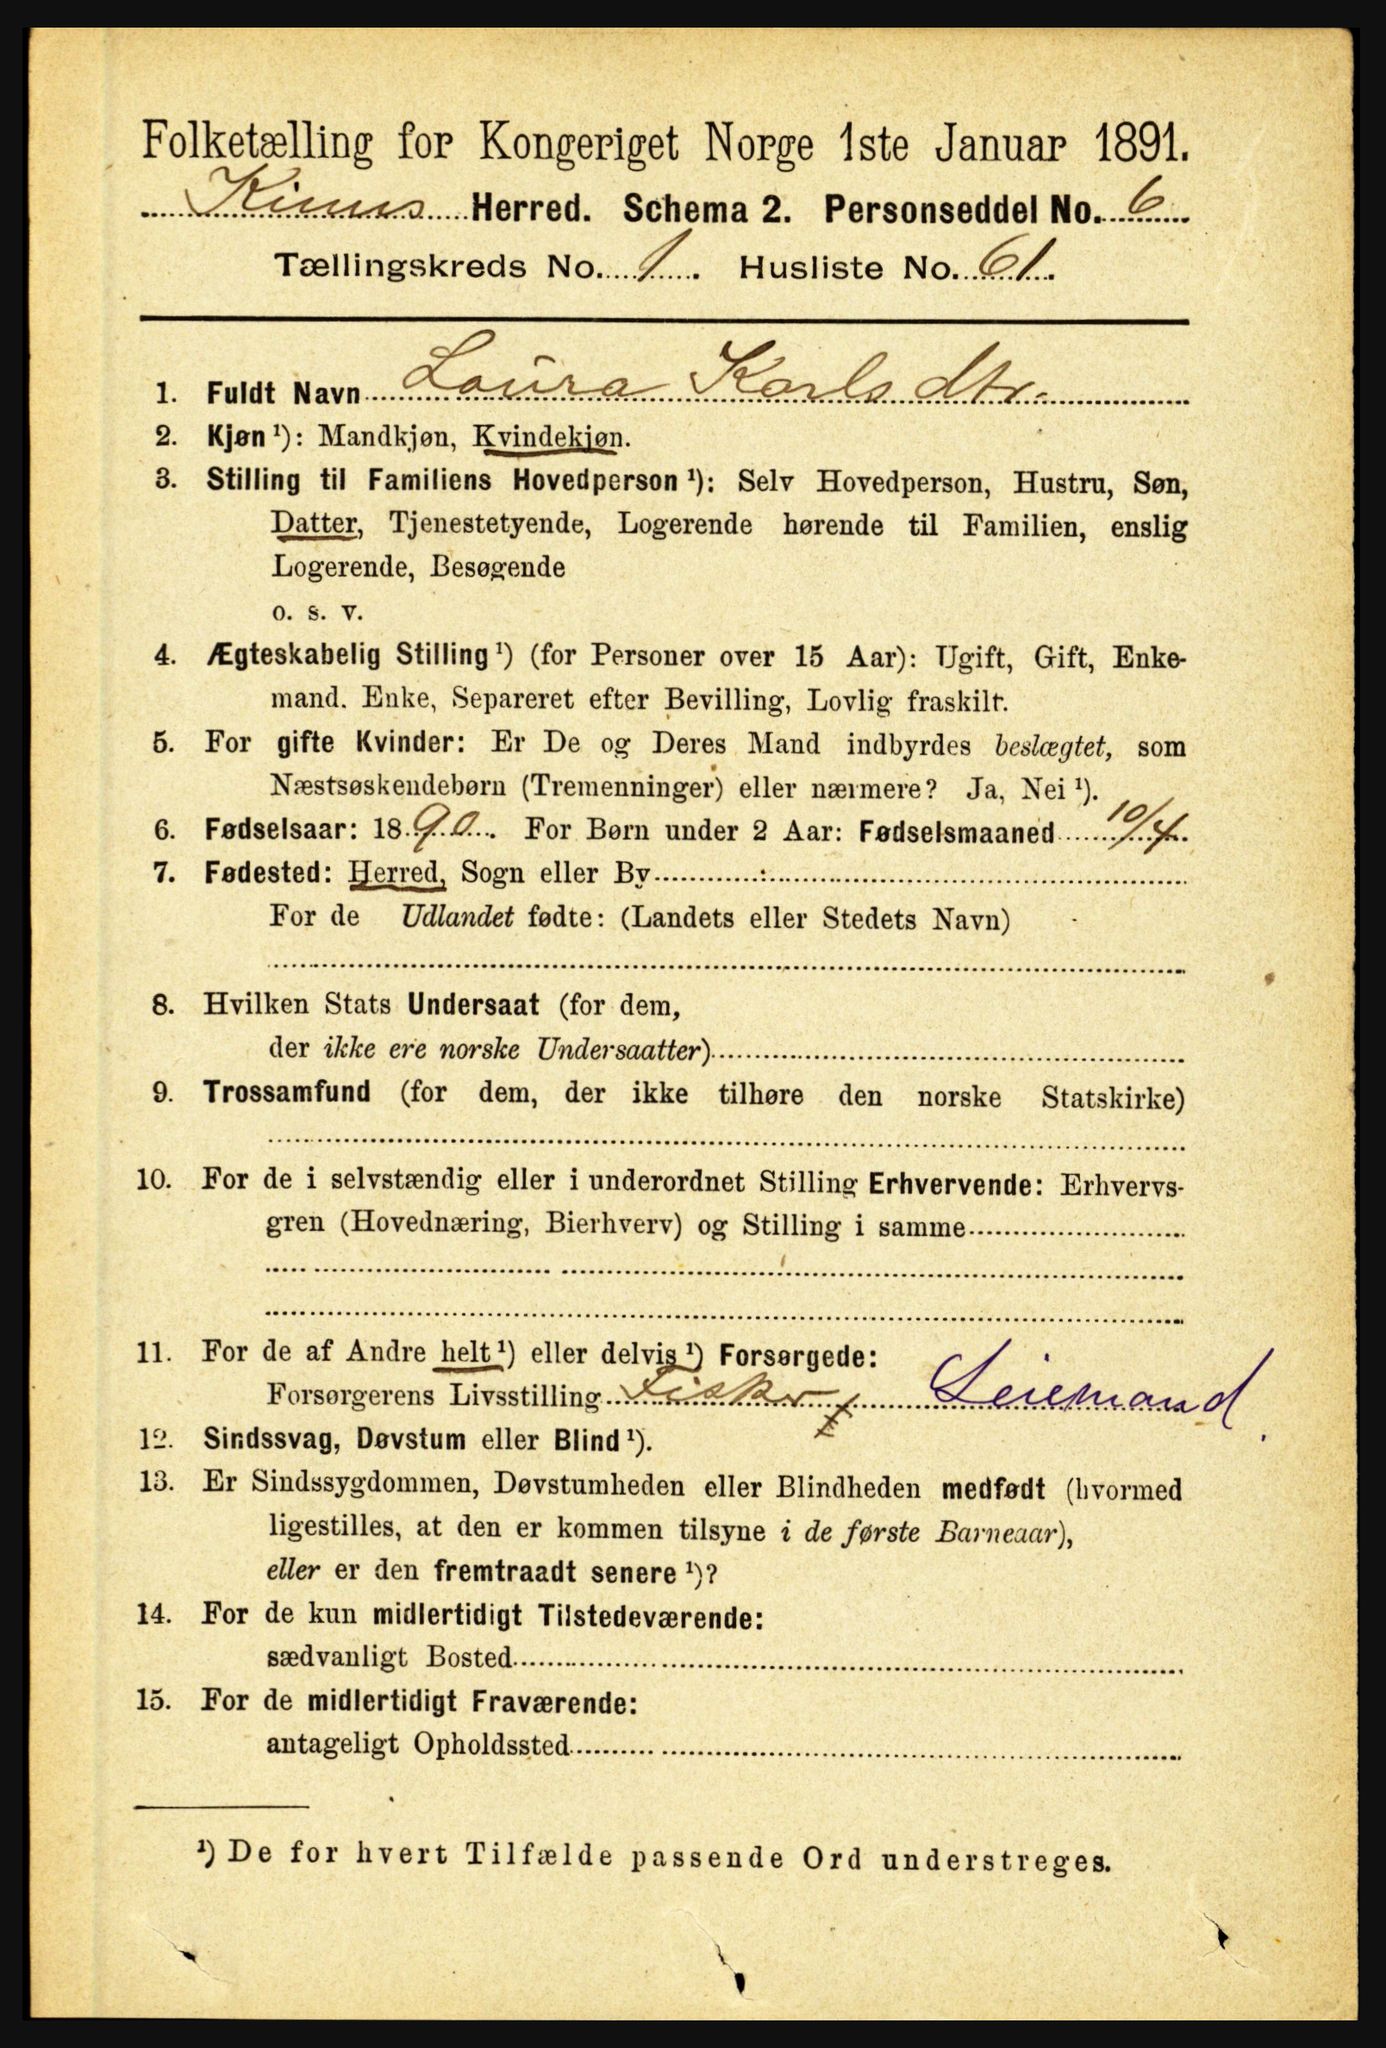 Folketælling for Kongeriget Norge 1ste Januar 1891.
Kinns Herred. Schema 2. Personseddel No. 6
Tællingskreds No. 1. Husliste No. 61.
1. Fuldt Navn Laura Karlsdtr.
2. Kjøn ¹): Mandkjøn, Kvindekjøn.
3. Stilling til Familiens Hovedperson ¹): Selv Hovedperson, Hustru, Søn,
Datter, Tjenestetyende, Logerende hørende til Familien, enslig
Logerende, Besøgende
o. s. v.
4. Ægteskabelig Stilling ¹) (for Personer over 15 Aar): Ugift, Gift, Enke-
mand. Enke, Separeret efter Bevilling, Lovlig fraskilt.
5. For gifte Kvinder: Er De og Deres Mand indbyrdes beslægtet, som
Næstsøskendebørn (Tremenninger) eller nærmere? Ja, Nei ¹).
6. Fødselsaar: 1890. For Børn under 2 Aar: Fødselsmaaned 10/4.
7. Fødested: Herred, Sogn eller By
For de Udlandet fødte: (Landets eller Stedets Navn)
8. Hvilken Stats Undersaat (for dem,
der ikke ere norske Undersaatter)
9. Trossamfund (for dem, der ikke tilhøre den norske Statskirke)
10. For de i selvstændig eller i underordnet Stilling Erhvervende: Erhvervs-
gren (Hovednæring, Bierhverv) og Stilling i samme
11. For de af Andre helt ¹) eller delvis ¹) Forsørgede:
Forsørgerens Livsstilling Fisker Leiemand
12. Sindssvag, Døvstum eller Blind ¹).
13. Er Sindssygdommen, Døvstumheden eller Blindheden medfødt (hvormed
ligestilles, at den er kommen tilsyne i de første Barneaar),
eller er den fremtraadt senere ¹)?
14. For de kun midlertidigt Tilstedeværende:
sædvanligt Bosted
15. For de midlertidigt Fraværende:
antageligt Opholdssted
¹) De for hvert Tilfælde passende Ord understreges.